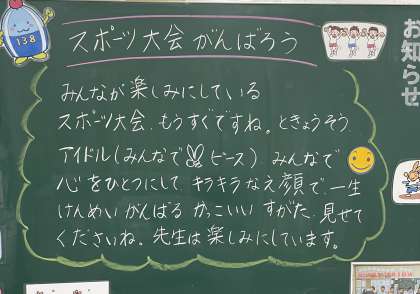 スポーツ大会がんばろう
お知らせ
138
みんなが楽しみにしている
スポーツ大会、もうすぐですね。ときょうそう
アイドル(みんなでピース) みんなで
心をひとつにして、キラキラなえ顔で、一生
けんめいがんばる かっこいい すがた、見せて
くださいね。先生は楽しみにしています。